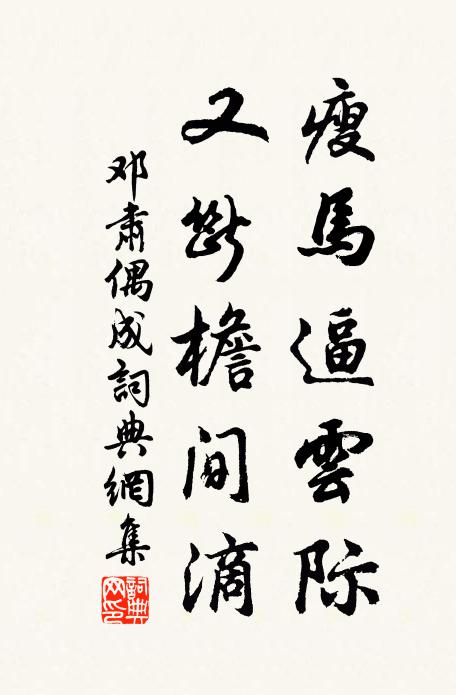 瘦馬逼雲际
又斷檐間滴
邓肅偶成詞典網集
詞典网印